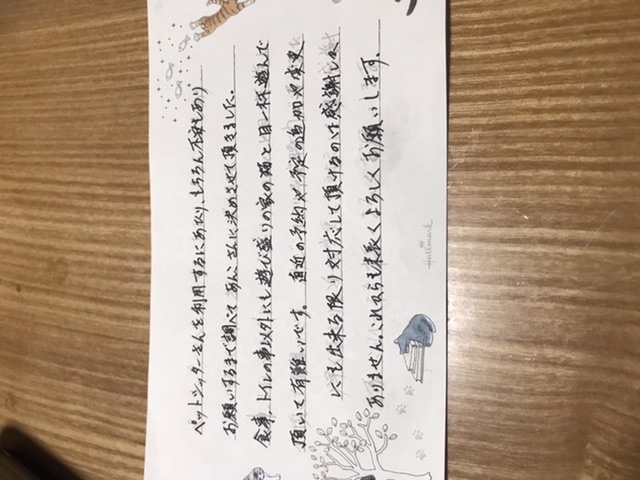 ペットシッターさんを利用するにあたり、もちろん不安もあり
お願いするまで調べて あんこさんに決めさせて頂きました。
食事、トイレの事以外にも遊び盛りの家の猫と目一杯遊んで
頂いて有難いです。直近の予約や予定の追加や変更
にも出来る限り対応して頂けるのは感謝しか
ありません。これからも末長くよろしくお願いします。
Hallmark